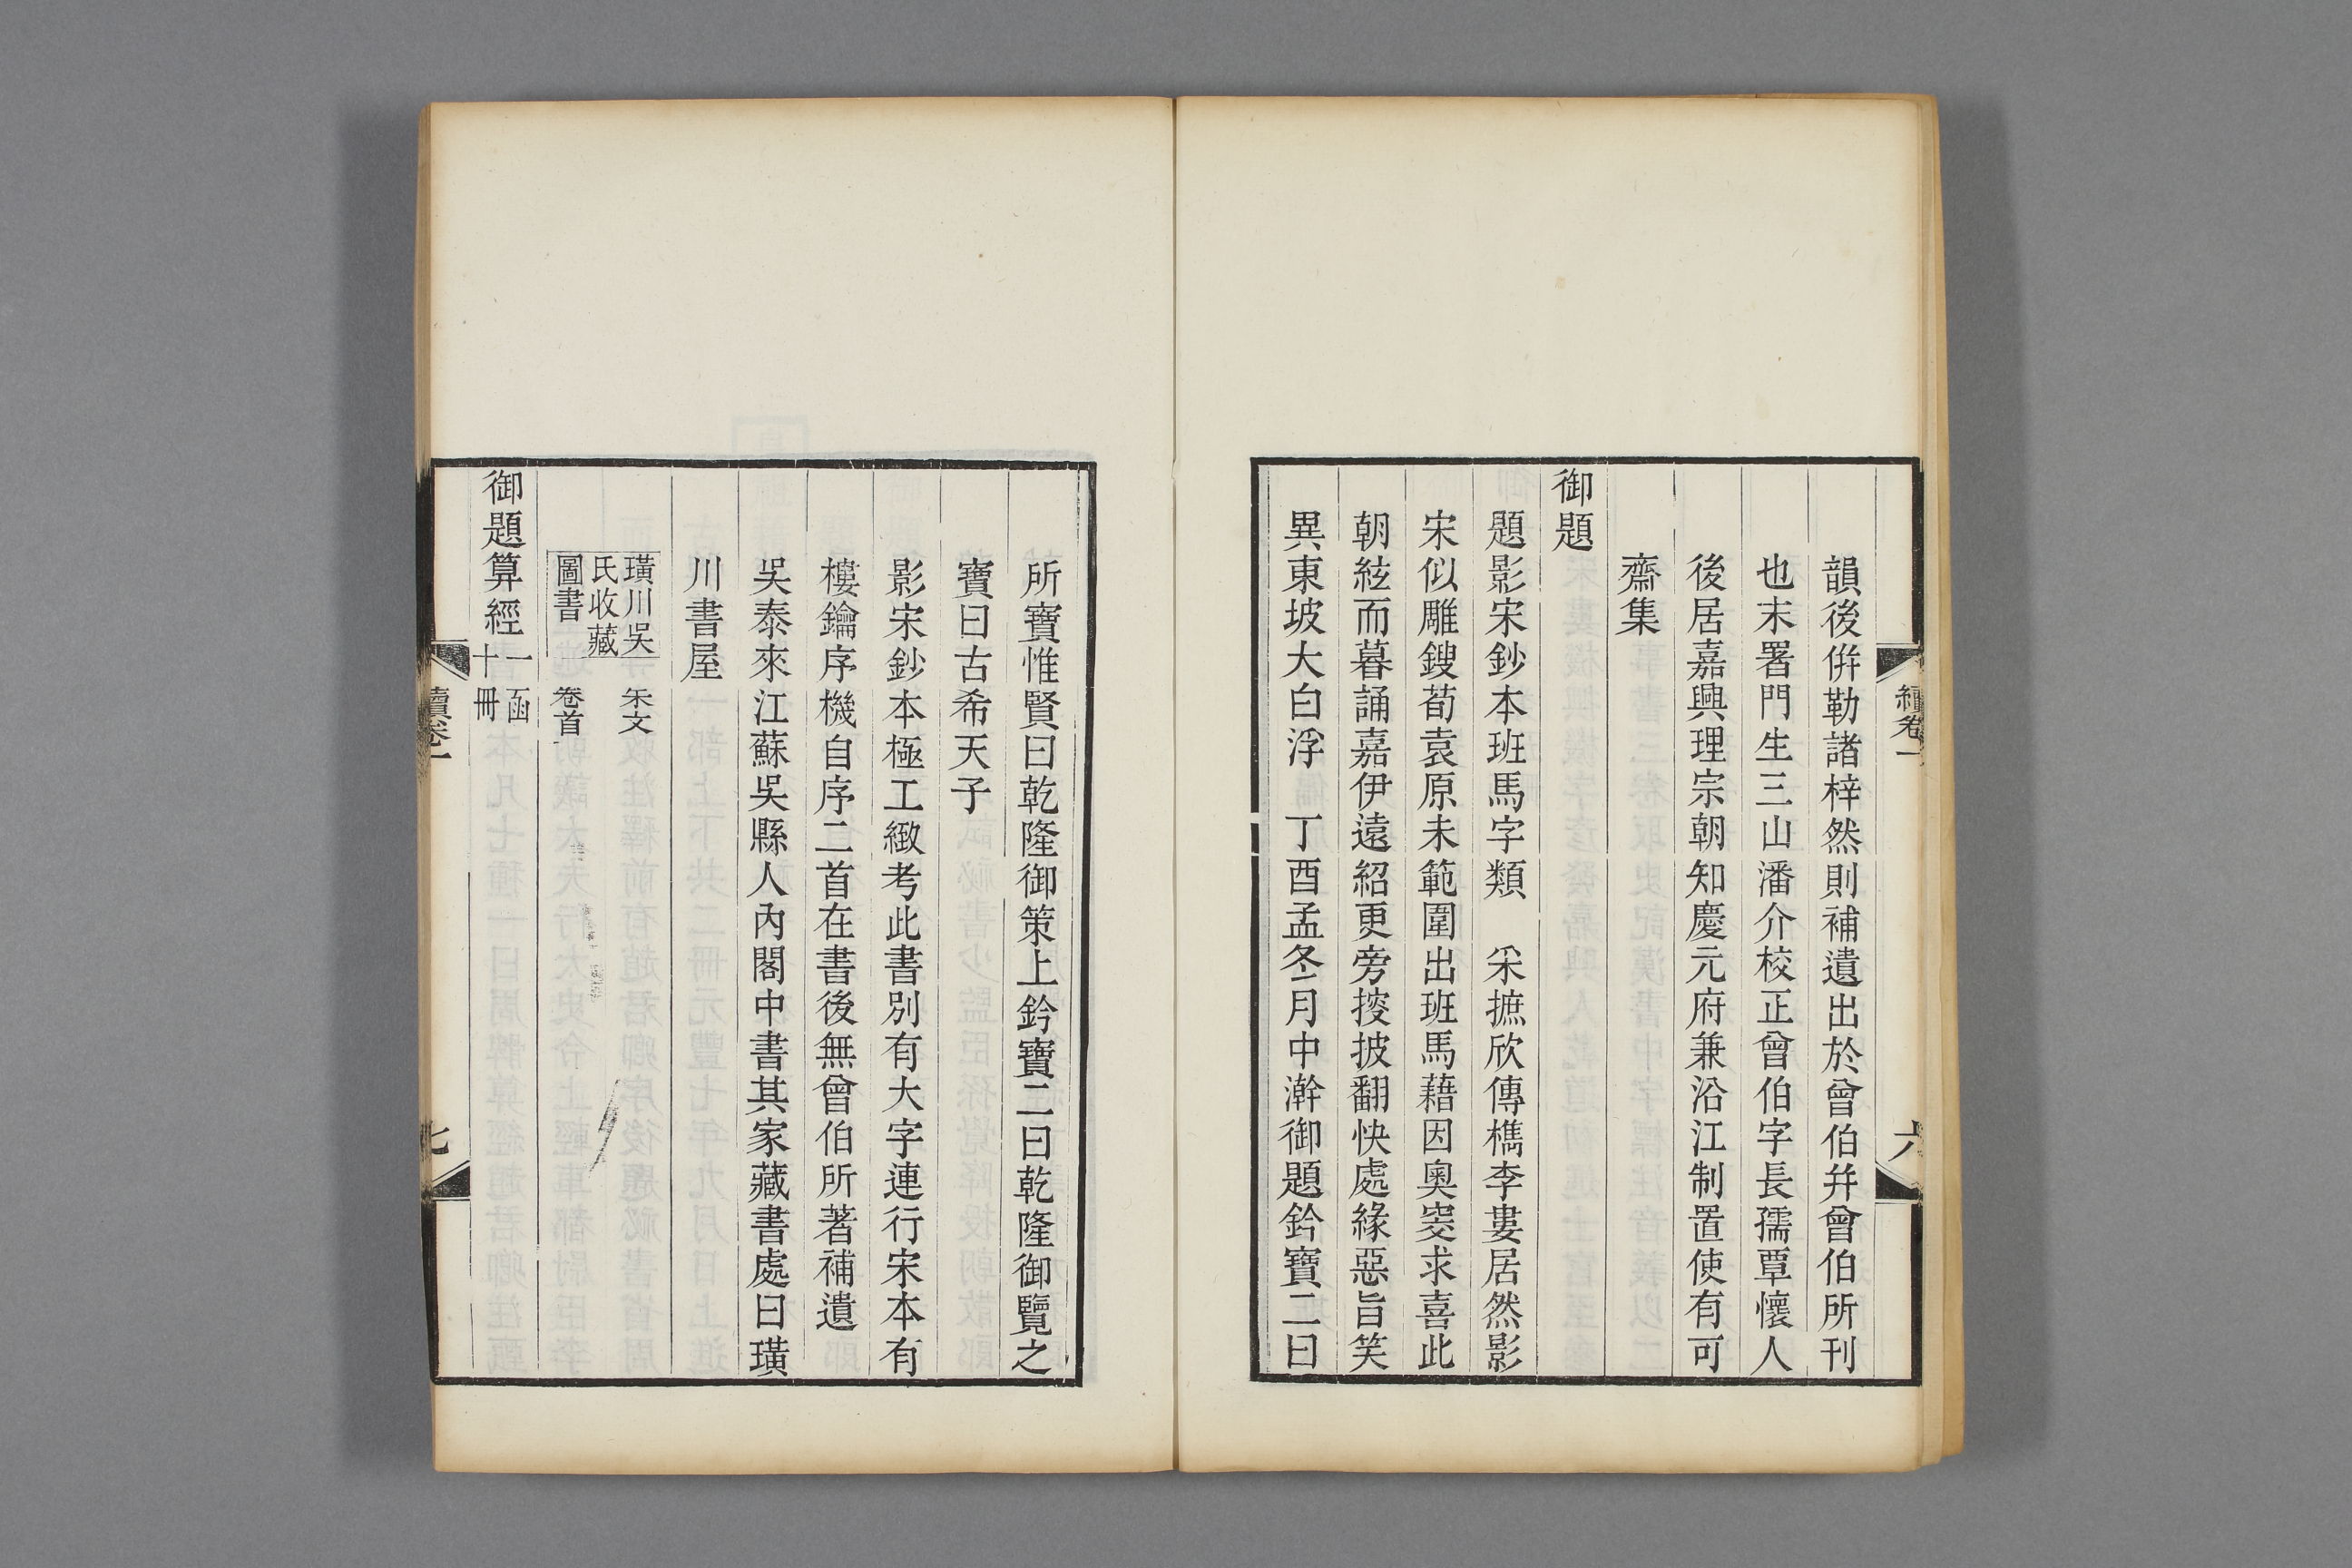 韻後併勒諸梓然則補遺出於曾伯并曾伯所刊
也末署門生三山潘介校正曾伯字長孺覃懷人
後居嘉興理宗朝知慶元府兼沿江制置使有可
齋集
御題
題影宋鈔本班馬字類　采摭欣傳檇李婁居然影
宋似雕鎪荀袁原未範圍出班馬藉因奧窔求喜此
朝絃而暮誦嘉伊遠紹更旁搜披翻快處緣惡旨笑
異東坡大白浮　丁酉孟冬月中澣御題鈐寶二曰
續卷一
六
所寶惟賢曰乾隆御策上鈐寶二曰乾隆御覽之
寶曰古希天子
影宋鈔本極工緻考此書別有大字連行宋本有
樓鑰序機自序二首在書後無曾伯所著補遺
吳泰來江蘇吳縣人內閣中書其家藏書處曰璜
川書屋
璜川吳
氏收藏
圖書
朱文
卷首
御題算經
一函
十冊
續卷一
七